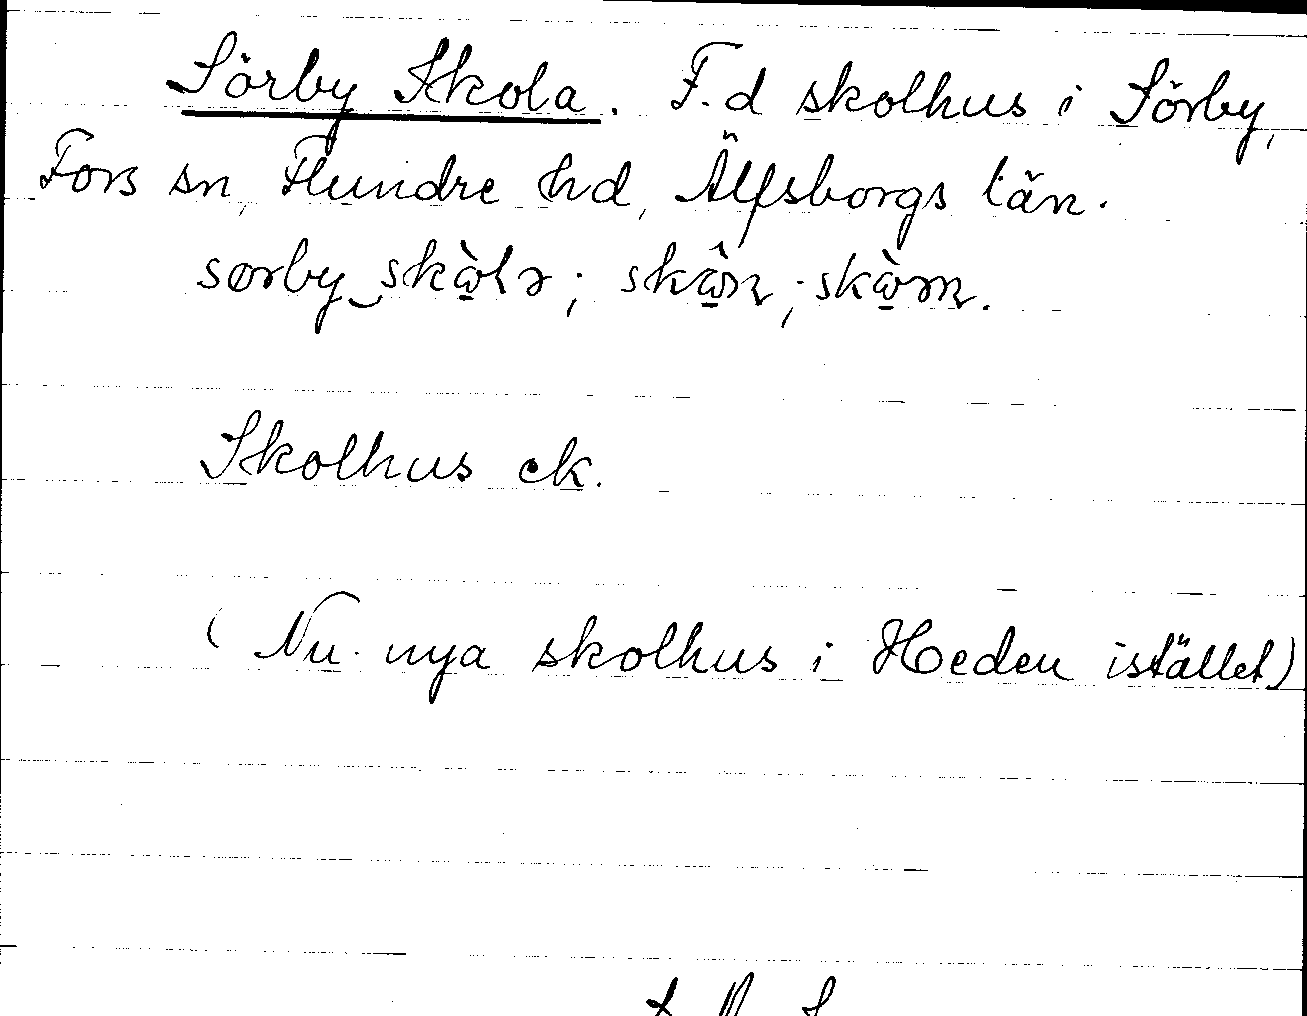 Sörby Skola. F.d skolhus i Sörby,
Fors sn, Flundre hd, Älfsborgs län.
sörby skòlə; skôn; skòən.
Skolhus ek.
(Nu nya skolhus i Heden istället)